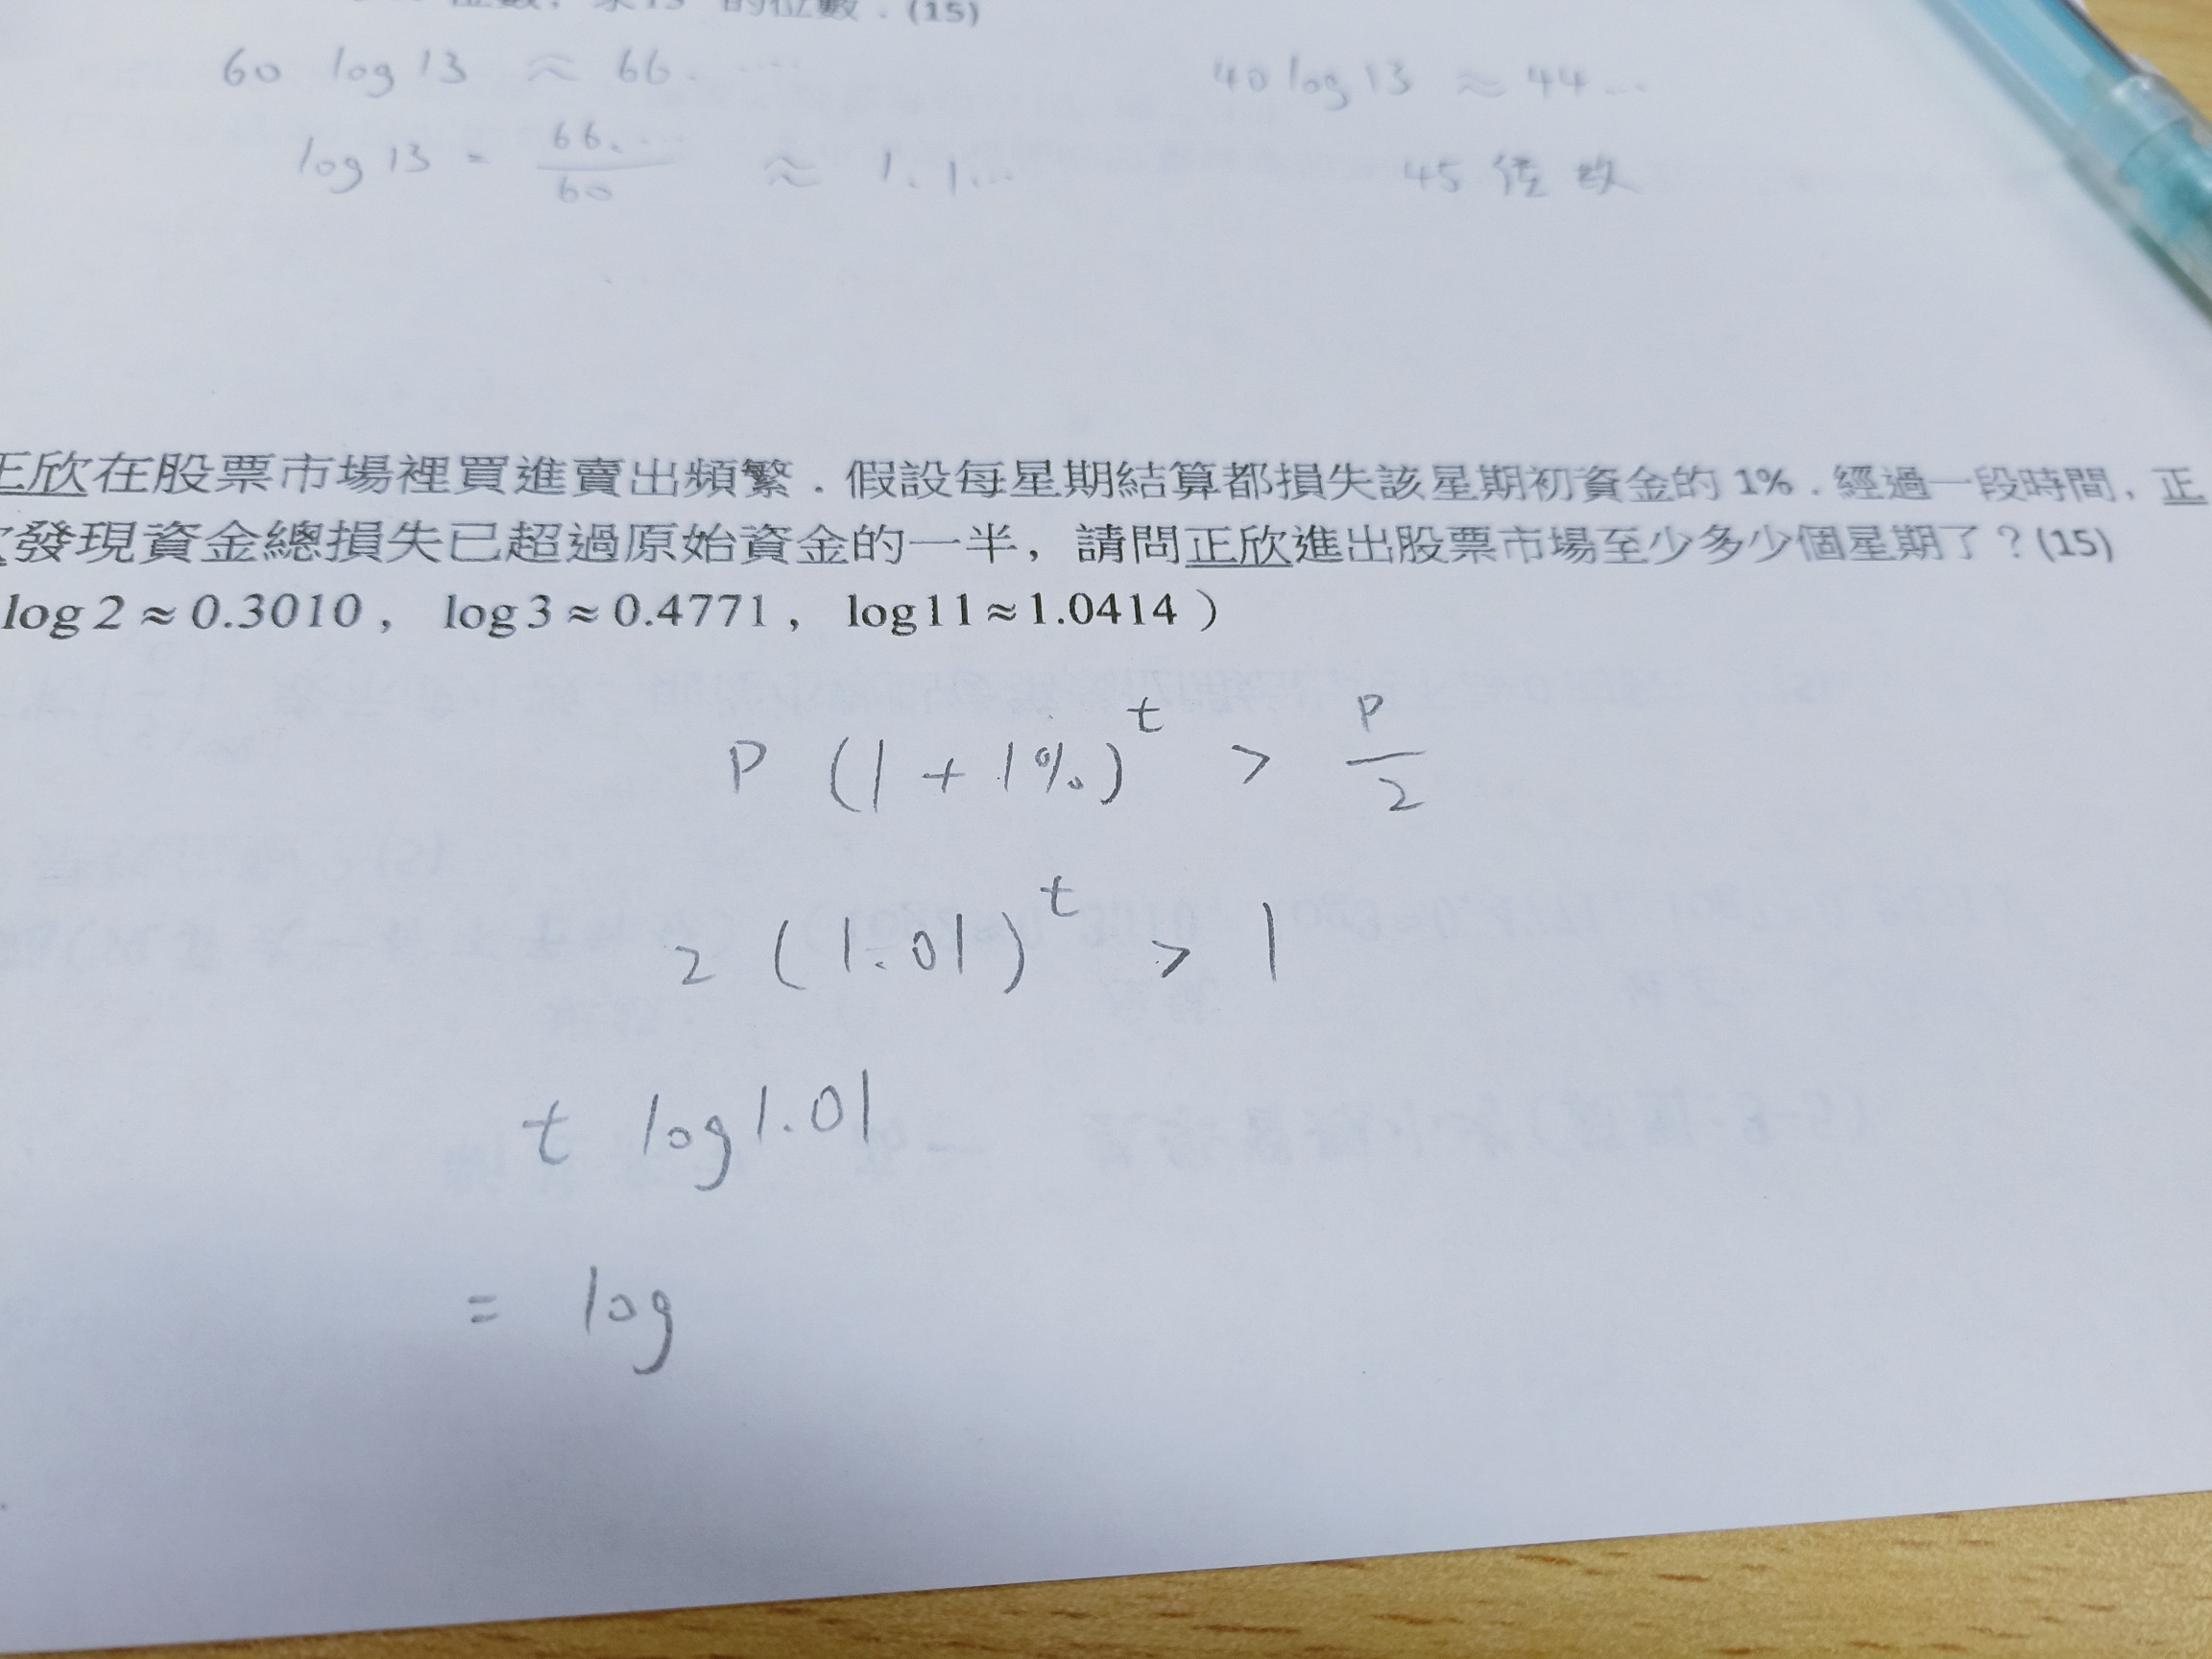 的位數.(15)
60 log 13 ≈ 66.....
40 log 13 ≈ 44...
log 13 = 66.... / 60 ≈ 1.1...
45 位数
正欣在股票市場裡買進賣出頻繁.假設每星期結算都損失該星期初資金的1%.經過一段時間,正
發現資金總損失已超過原始資金的一半,請問正欣進出股票市場至少多少個星期了?(15)
log 2 ≈ 0.3010, log 3 ≈ 0.4771, log 11 ≈ 1.0414)
P (1 + 1%)^t > P/2
2 (1.01)^t > 1
t log 1.01
= log